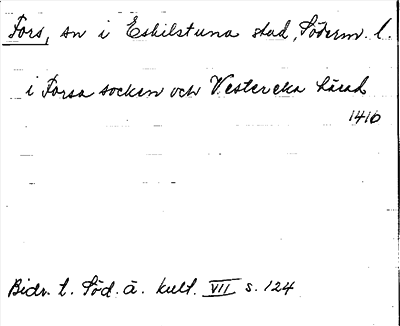 Fors, sn i Eskilstuna stad, Söderm. l.
i Forsa socken och Vestereka härad
1416
Bidr. t. Söd. ä. kult. VII s. 124